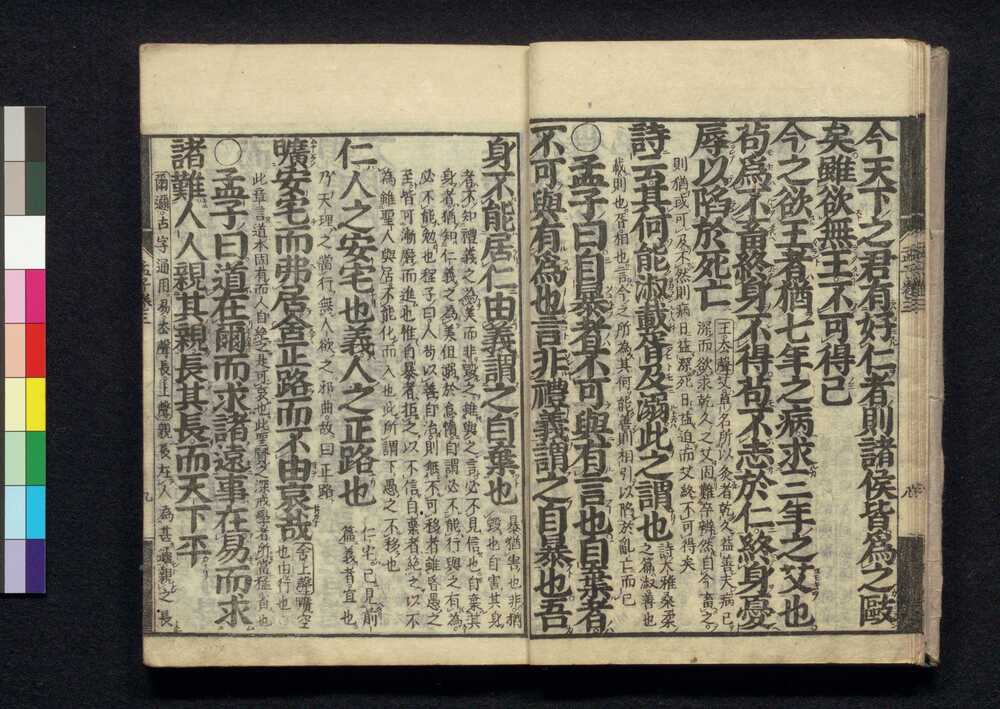 今天下之君有好仁者則諸侯皆爲之敺
矣雖欲無王不可得已
今之欲王者猶七年之病求三年之艾也
苟爲不畜終身不得苟不志於仁終身憂
辱以陷於死亡
王去聲艾草名所以灸者乾久益善夫病已
深而欲求乾久之艾固難卒辦然自今畜之
則猶或可及不然則病日益深死日益迫而艾終不可得矣
詩云其何能淑載胥及溺此之謂也
詩大雅桑柔
之篇淑善也
載則也胥相也言今之所為其何能善則相引以陷於亂亡而已
○孟子曰自暴者不可與有言也自棄者
不可與有爲也言非禮義謂之自暴也吾
身不能居仁由義謂之自棄也
暴猶害也非猶
毀也自害其身
者不知禮義之為美而非毀之雖與之言必不見信也自棄其
身者猶知仁義之為美但溺於怠惰自謂必不能行與之有為
必不能勉也程子曰人苟以善自治則無不可移者雖昏愚之
至皆可漸磨而進也惟自暴者拒之以不信自棄者絶之以不
為雖聖人與居不能化而入也此所謂下愚之不移也
仁人之安宅也義人之正路也
仁宅已見前
篇義者宜也
乃天理之當行無人欲之邪曲故曰正路
曠安宅而弗居舍正路而不由哀哉
舍上聲曠空
也由行也
此章言道本固有而人自絶之是可哀也此聖賢之深戒學者所當猛省也
○孟子曰道在爾而求諸遠事在易而求
諸難人人親其親長其長而天下平
爾邇古字通用易去聲長上聲親長在人為甚邇親之長